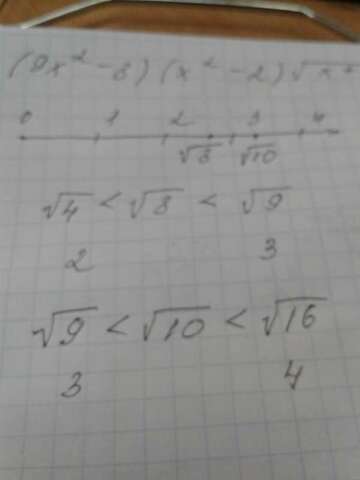 (9x² - 6)(x² - 2)√x²
0 1 2 3 4
√8 √10
√4 < √8 < √9
2 3
√9 < √10 < √16
3 4